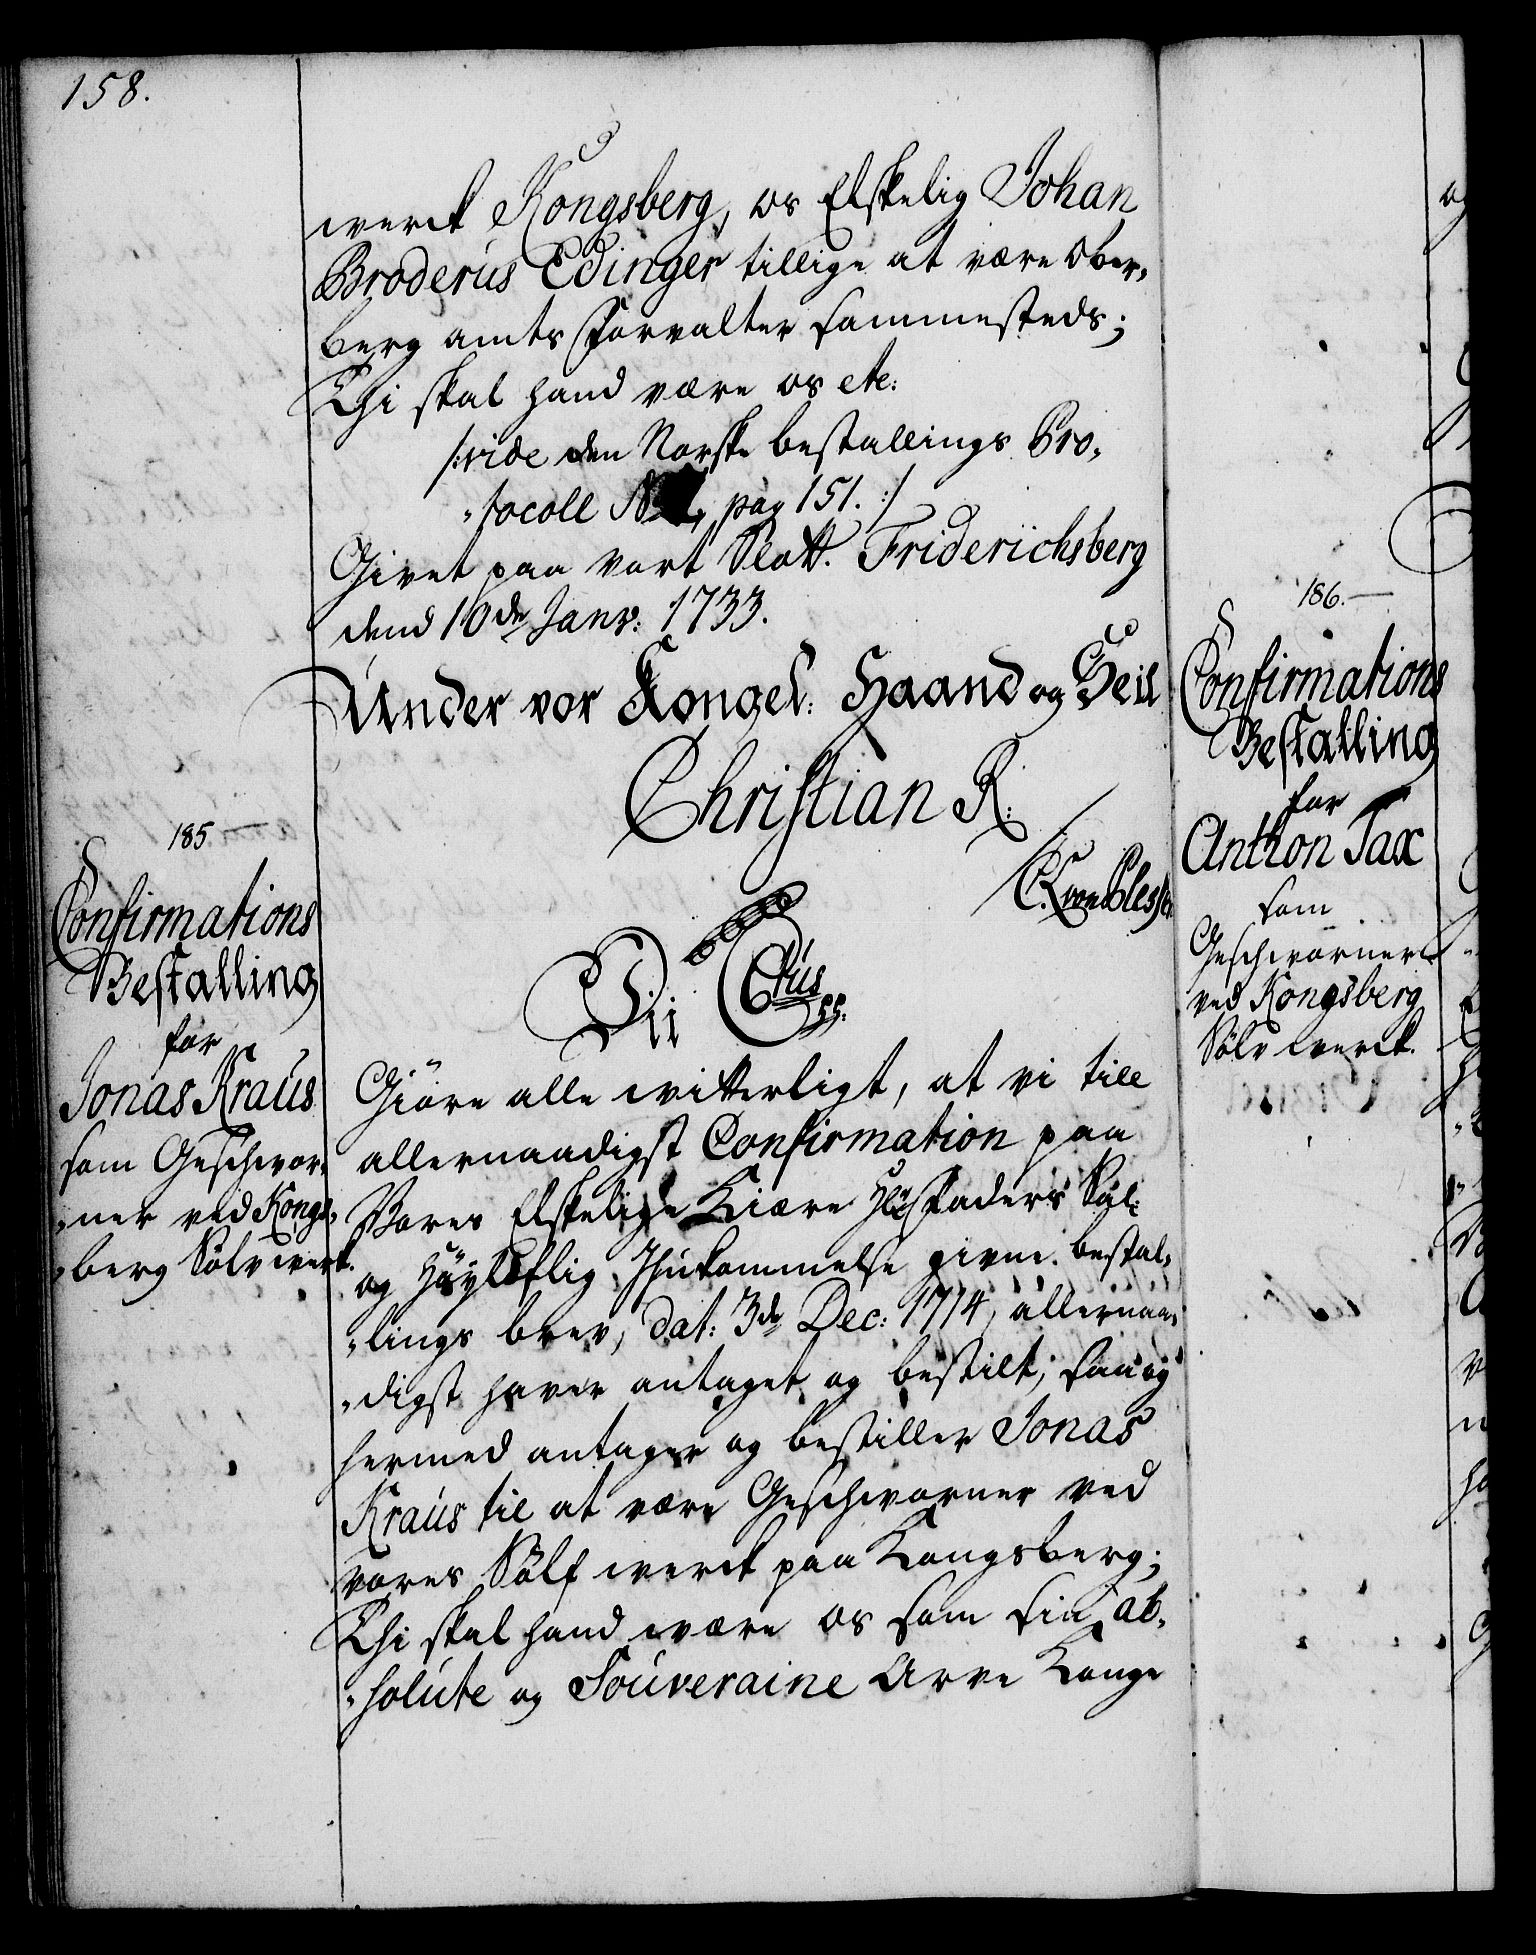 158.
werck Kongsberg, os Elskelig Johan
Broderus Edinger tillige at være Ober„
berg amts Forvalter sammesteds;
Thi skal hand være os etc:
/:vide den Norske bestallings Pro„
„tocoll pag 151. :/
Givet paa vort Slott. Friderichsberg
dend 10de Janv: 1733.
Under vor Kongel: Haand og Seil
Christian R:
185.
Confirmations
Bestalling
for
Jonas Kraus
som Geschwor„
„ner ved Kongs„
„berg Sølvwerk.
Vii Ctus pp.
Giøre alle witterligt, at vi till
allernaadigst Confirmation paa
Vores Elskelige Kiære Hl: Faders Sal:
og Høyloflig Ihukommelse givne bestal„
„lings brev, dat: 3de Dec: 1714, allernaa„
„digst haver antaget og bestilt, saa og
hermed antager og bestiller Jonas
Kraus til at være Geschworner ved
vores Sølf werck paa Kongsberg;
Thi skal hand være os som sin ab„
„solute og Souveraine Arve Konge
186.
Confirmations
Bestalling
for
Anthon Tax
som
Geschworner
ved Kongsberg
Sølv werck.